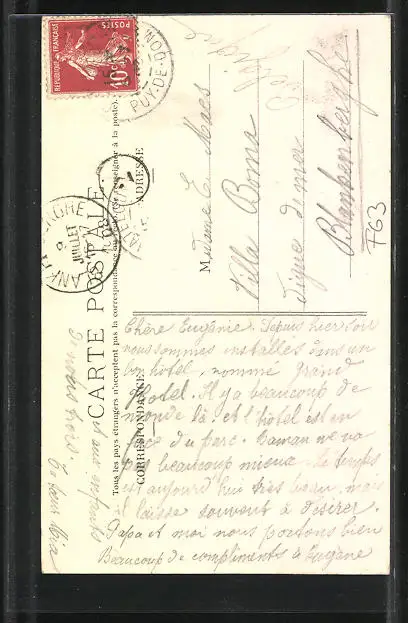 REPUBLIQUE FRANÇAISE
POSTES
10c
PUY-DE-DOM
BLANKENBERGHE
JUILLET
CARTE POSTALE
Tous les pays étrangers n'acceptent pas la correspondance au recto (se renseigner à la poste).
CORRESPONDANCE
ADRESSE
Madame E. Maes
Villa Boma
Digue de mer
Blankenberghe
F63
Chère Eugénie. Depuis hier soir
nous sommes installés dans un
bon hôtel, nommé grand
Hotel. Il y a beaucoup de
monde là. et l'hôtel est en
face du parc. Maman ne va
pas beaucoup mieux. le temps
est aujourd'hui très beau, mais
laisse souvent à désirer.
Papa et moi nous portons bien
Beaucoup de compliments à Eugène
et aux enfants
de nous trois.